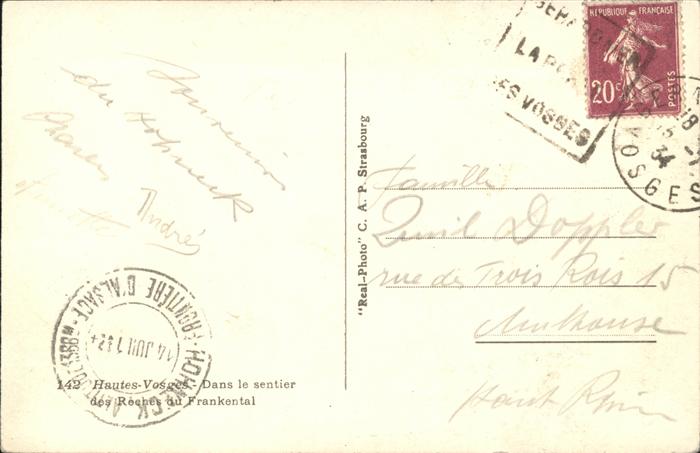 Souvenir
du Hohneck
André
142 Hautes-Vosges - Dans le sentier
des Rochés du Frankental
HOHNECK
FRONTIÈRE D'ALSACE
14 JUIL
"Real-Photo" C. A. P. Strasbourg
GÉRARDMER
LA
DES VOSGES
RÉPUBLIQUE FRANÇAISE
20c
POSTES
18
34
VOSGES
Famille
Emil Doppler
rue de Trois Rois 15
Mulhouse
Haut Rhin